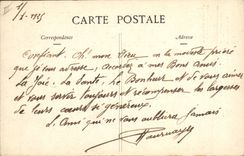 1/1-1925
CARTE POSTALE
Correspondance
Adresse
Confiant. Oh! mon Dieu en la modeste prière
que je vous adresse, accordez à mes Bons Amis.
La Joie. La Santé. Le Bonheur et de vous aimer
et vous servir toujours et récompensez les largesses
de leurs cœurs si généreux.
L'Ami qui ne vous oubliera jamais